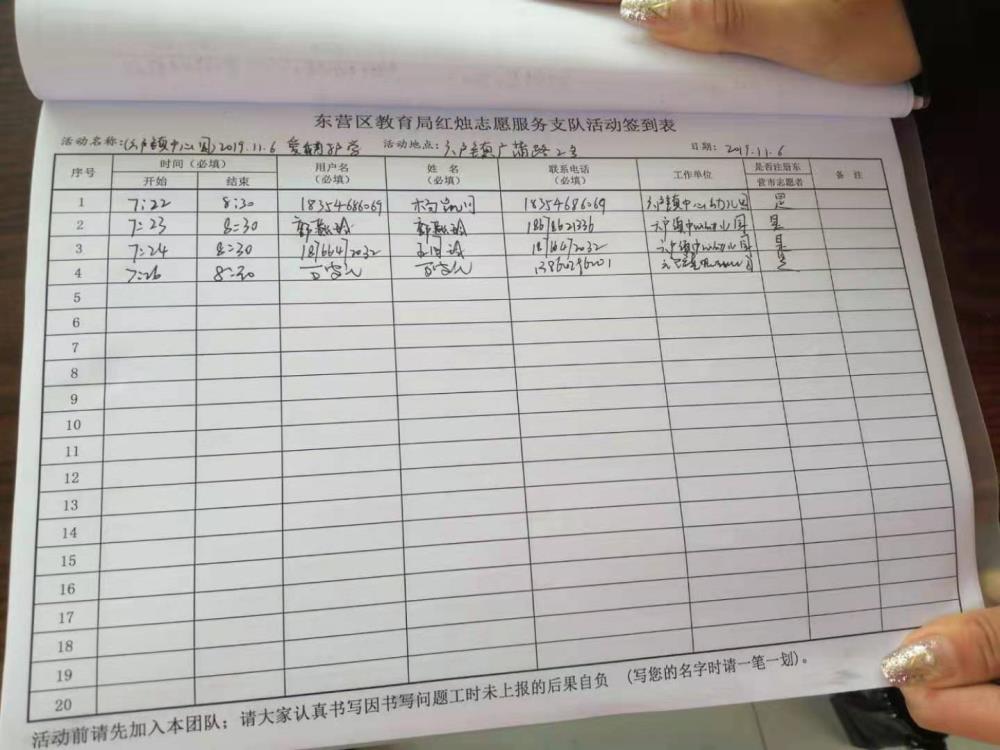 东营区教育局红烛志愿服务支队活动签到表
活动名称:(六户镇中心园)2019.11.6 爱朝护学 活动地点:六户镇广蒲路2号 日期: 2019.11.6
序号 时间(必填) 用户名(必填) 姓名(必填) 联系电话(必填) 工作单位 是否注册东营市志愿者 备注
开始 结束
1 7:22 8:30 18354686069 18354686069 六户镇中心幼儿园 是
2 7:23 8:30 六户镇中心幼儿园 是
3 7:24 8:30 18166412032 六户镇中心幼儿园 是
4 7:26 8:30 是
5
6
7
8
9
10
11
12
13
14
15
16
17
18
19
20
活动前请先加入本团队;请大家认真书写因书写问题工时未上报的后果自负 (写您的名字时请一笔一划)。